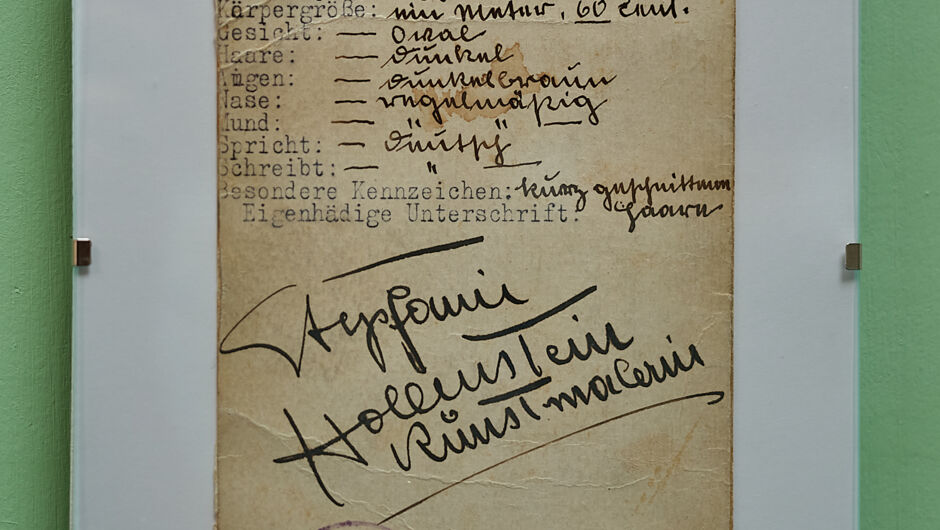 Kärpergröße: ein Meter, 60 Zent.
Gesicht: — Oval
Haare: — dunkel
Augen: — dunkelbraun
Nase: — regelmäßig
Mund: — " —
Spricht: — deutsch
Schreibt: — "
Besondere Kennzeichen: kurz geschnittene
Haare
Eigenhädige Unterschrift:
Stephanie
Hollenstein
Kunstmalerin